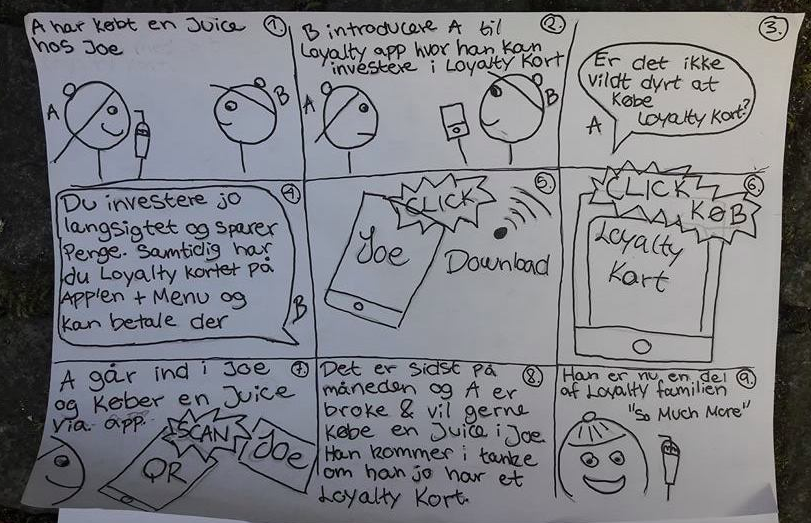 A har købt en Juice
hos Joe
1.
A
B
B introducere A til
Loyalty app hvor han kan
investere i Loyalty Kort
2.
A
B
3.
Er det ikke
vildt dyrt at
Købe
Loyalty Kort?
A
4.
Du investere jo
langsigtet og sparer
Penge. Samtidig har
du Loyalty kortet på
App'en + Menu og
kan betale der
B
5.
CLICK
Joe
Download
6.
CLICK
KØB
Loyalty
Kart
7.
A går ind i Joe
og Køber en Juice
via app.
SCAN
QR
Joe
8.
Det er sidst på
måneden og A er
broke & vil gerne
Købe en Juice i Joe.
Han kommer i tanke
om han jo har et
Loyalty Kort.
9.
Han er nu en del
af Loyalty familien
"So Much More"